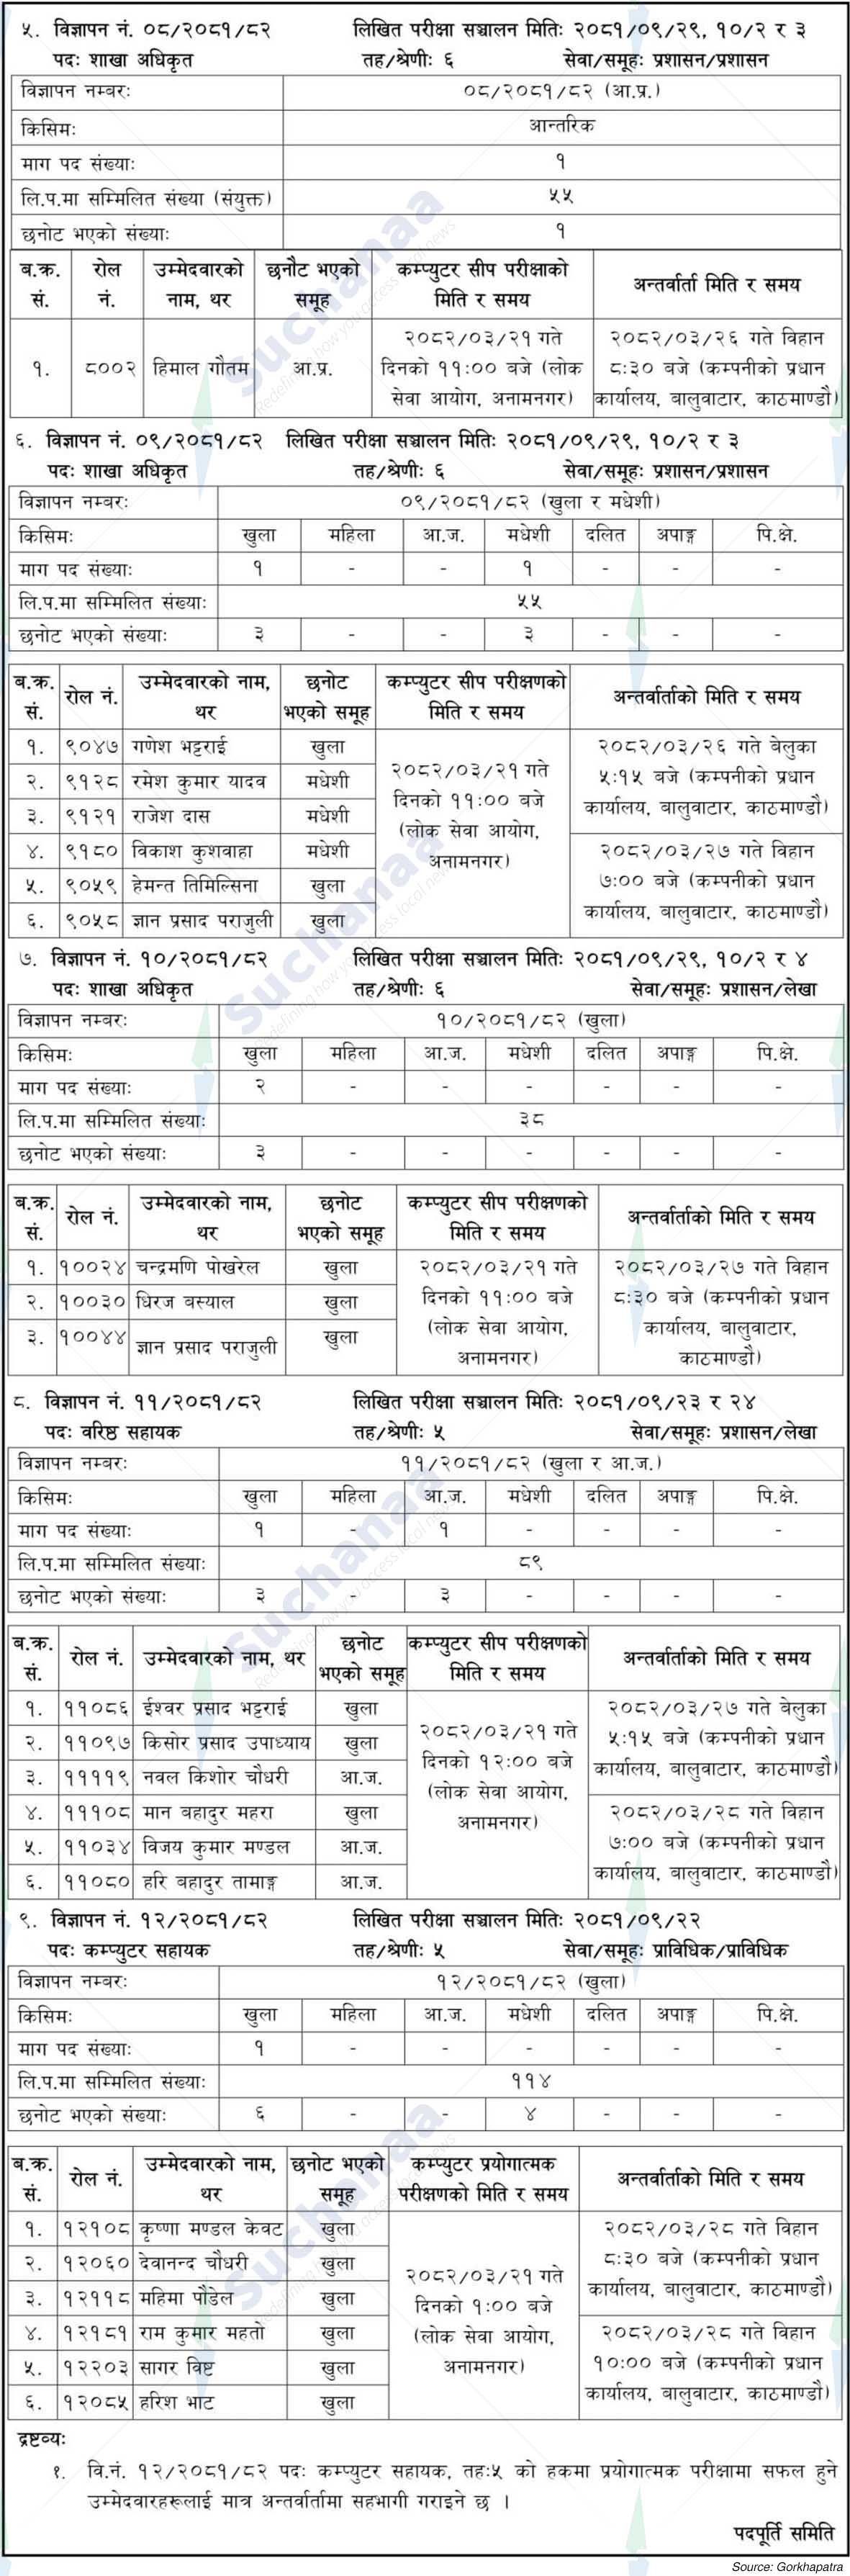 ५. विज्ञापन नं. ०८/२०८१/८२ लिखित परीक्षा सञ्चालन मितिः २०८१/०९/२९, १०/२ र ३
पदः शाखा अधिकृत तह/श्रेणीः ६ सेवा/समूहः प्रशासन/प्रशासन
विज्ञापन नम्बरः ०८/२०८१/८२ (आ.प्र.)
किसिमः आन्तरिक
माग पद संख्याः १
लि.प.मा सम्मिलित संख्या (संयुक्त) ५५
छनोट भएको संख्याः १
ब.क्र. रोल उम्मेदवारको छनौट भएको कम्प्युटर सीप परीक्षाको अन्तर्वार्ता मिति र समय
सं. नं. नाम, थर समूह मिति र समय
१. ८००२ हिमाल गौतम आ.प्र. २०८२/०३/२१ गते २०८२/०३/२६ गते विहान
दिनको ११:०० बजे (लोक ८:३० बजे (कम्पनीको प्रधान
सेवा आयोग, अनामनगर) कार्यालय, बालुवाटार, काठमाण्डौ)
६. विज्ञापन नं. ०९/२०८१/८२ लिखित परीक्षा सञ्चालन मितिः २०८१/०९/२९, १०/२ र ३
पदः शाखा अधिकृत तह/श्रेणीः ६ सेवा/समूहः प्रशासन/प्रशासन
विज्ञापन नम्बरः ०९/२०८१/८२ (खुला र मधेशी)
किसिमः खुला महिला आ.ज. मधेशी दलित अपाङ्ग पि.क्षे.
माग पद संख्याः १ - - १ - - -
लि.प.मा सम्मिलित संख्याः ५५
छनोट भएको संख्याः ३ - - ३ - - -
ब.क्र. रोल नं. उम्मेदवारको नाम, छनोट कम्प्युटर सीप परीक्षणको अन्तर्वार्ताको मिति र समय
सं. थर भएको समूह मिति र समय
१. ९०४७ गणेश भट्टराई खुला २०८२/०३/२१ गते २०८२/०३/२६ गते बेलुका
२. ९१२८ रमेश कुमार यादव मधेशी दिनको ११:०० बजे ५:१५ बजे (कम्पनीको प्रधान
३. ९१२१ राजेश दास मधेशी (लोक सेवा आयोग, कार्यालय, बालुवाटार, काठमाण्डौ)
४. ९१८० विकाश कुशवाहा मधेशी अनामनगर) २०८२/०३/२७ गते विहान
५. ९०५९ हेमन्त तिमिल्सिना खुला ७:०० बजे (कम्पनीको प्रधान
६. ९०५८ ज्ञान प्रसाद पराजुली खुला कार्यालय, बालुवाटार, काठमाण्डौ)
७. विज्ञापन नं. १०/२०८१/८२ लिखित परीक्षा सञ्चालन मितिः २०८१/०९/२९, १०/२ र ४
पदः शाखा अधिकृत तह/श्रेणीः ६ सेवा/समूहः प्रशासन/लेखा
विज्ञापन नम्बरः १०/२०८१/८२ (खुला)
किसिमः खुला महिला आ.ज. मधेशी दलित अपाङ्ग पि.क्षे.
माग पद संख्याः २ - - - - - -
लि.प.मा सम्मिलित संख्याः ३८
छनोट भएको संख्याः ३ - - - - - -
ब.क्र. रोल नं. उम्मेदवारको नाम, छनोट कम्प्युटर सीप परीक्षणको अन्तर्वार्ताको मिति र समय
सं. थर भएको समूह मिति र समय
१. १००२४ चन्द्रमणि पोखरेल खुला २०८२/०३/२१ गते २०८२/०३/२७ गते विहान
२. १००३० धिरज बस्याल खुला दिनको ११:०० बजे ८:३० बजे (कम्पनीको प्रधान
३. १००४४ ज्ञान प्रसाद पराजुली खुला (लोक सेवा आयोग, कार्यालय, बालुवाटार,
अनामनगर) काठमाण्डौ)
८. विज्ञापन नं. ११/२०८१/८२ लिखित परीक्षा सञ्चालन मितिः २०८१/०९/२३ र २४
पदः वरिष्ठ सहायक तह/श्रेणीः ५ सेवा/समूहः प्रशासन/लेखा
विज्ञापन नम्बरः ११/२०८१/८२ (खुला र आ.ज.)
किसिमः खुला महिला आ.ज. मधेशी दलित अपाङ्ग पि.क्षे.
माग पद संख्याः १ - १ - - - -
लि.प.मा सम्मिलित संख्याः ८९
छनोट भएको संख्याः ३ - ३ - - - -
ब.क्र. रोल नं. उम्मेदवारको नाम, थर छनोट कम्प्युटर सीप परीक्षणको अन्तर्वार्ताको मिति र समय
सं. भएको समूह मिति र समय
१. ११०८६ ईश्वर प्रसाद भट्टराई खुला २०८२/०३/२१ गते २०८२/०३/२७ गते बेलुका
२. ११०९७ किसोर प्रसाद उपाध्याय खुला दिनको १२:०० बजे ५:१५ बजे (कम्पनीको प्रधान
३. ११११९ नवल किशोर चौधरी आ.ज. (लोक सेवा आयोग, कार्यालय, बालुवाटार, काठमाण्डौ)
४. १११०८ मान बहादुर महरा खुला अनामनगर) २०८२/०३/२८ गते विहान
५. ११०३४ विजय कुमार मण्डल आ.ज. ७:०० बजे (कम्पनीको प्रधान
६. ११०८० हरि बहादुर तामाङ्ग आ.ज. कार्यालय, बालुवाटार, काठमाण्डौ)
९. विज्ञापन नं. १२/२०८१/८२ लिखित परीक्षा सञ्चालन मितिः २०८१/०९/२२
पदः कम्प्युटर सहायक तह/श्रेणीः ५ सेवा/समूहः प्राविधिक/प्राविधिक
विज्ञापन नम्बरः १२/२०८१/८२ (खुला)
किसिमः खुला महिला आ.ज. मधेशी दलित अपाङ्ग पि.क्षे.
माग पद संख्याः १ - - - - - -
लि.प.मा सम्मिलित संख्याः ११४
छनोट भएको संख्याः ६ - - ४ - - -
ब.क्र. रोल नं. उम्मेदवारको नाम, छनोट भएको कम्प्युटर प्रयोगात्मक अन्तर्वार्ताको मिति र समय
सं. थर समूह परीक्षणको मिति र समय
१. १२१०८ कृष्णा मण्डल केवट खुला २०८२/०३/२१ गते २०८२/०३/२८ गते विहान
२. १२०६० देवानन्द चौधरी खुला दिनको १:०० बजे ८:३० बजे (कम्पनीको प्रधान
३. १२११८ महिमा पौडेल खुला (लोक सेवा आयोग, कार्यालय, बालुवाटार, काठमाण्डौ)
४. १२१८१ राम कुमार महतो खुला अनामनगर) २०८२/०३/२८ गते विहान
५. १२२०३ सागर विष्ट खुला १०:०० बजे (कम्पनीको प्रधान
६. १२०८५ हरिश भाट खुला कार्यालय, बालुवाटार, काठमाण्डौ)
द्रष्टव्यः
१. वि.नं. १२/२०८१/८२ पदः कम्प्युटर सहायक, तहः५ को हकमा प्रयोगात्मक परीक्षामा सफल हुने
उम्मेदवारहरूलाई मात्र अन्तर्वार्तामा सहभागी गराइने छ ।
पदपूर्ति समिति
Source: Gorkhapatra
Suchanaa
Redefining how you access local news